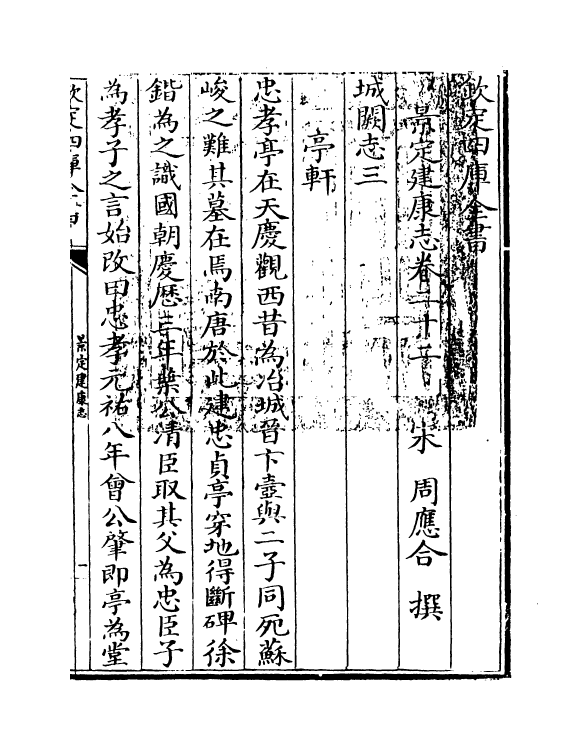 欽定四庫全書
景定建康志卷二十二
宋 周應合 撰
城闕志三
亭軒
忠孝亭在天慶觀西昔為冶城晉卞壼與二子同死蘇
峻之難其墓在焉南唐於此建忠貞亭穿地得斷碑徐
鍇為之識國朝慶歴三年葉公清臣取其父為忠臣子
為孝子之言始改曰忠孝元祐八年曾公肇即亭為堂
欽定四庫全書
景定建康志
一